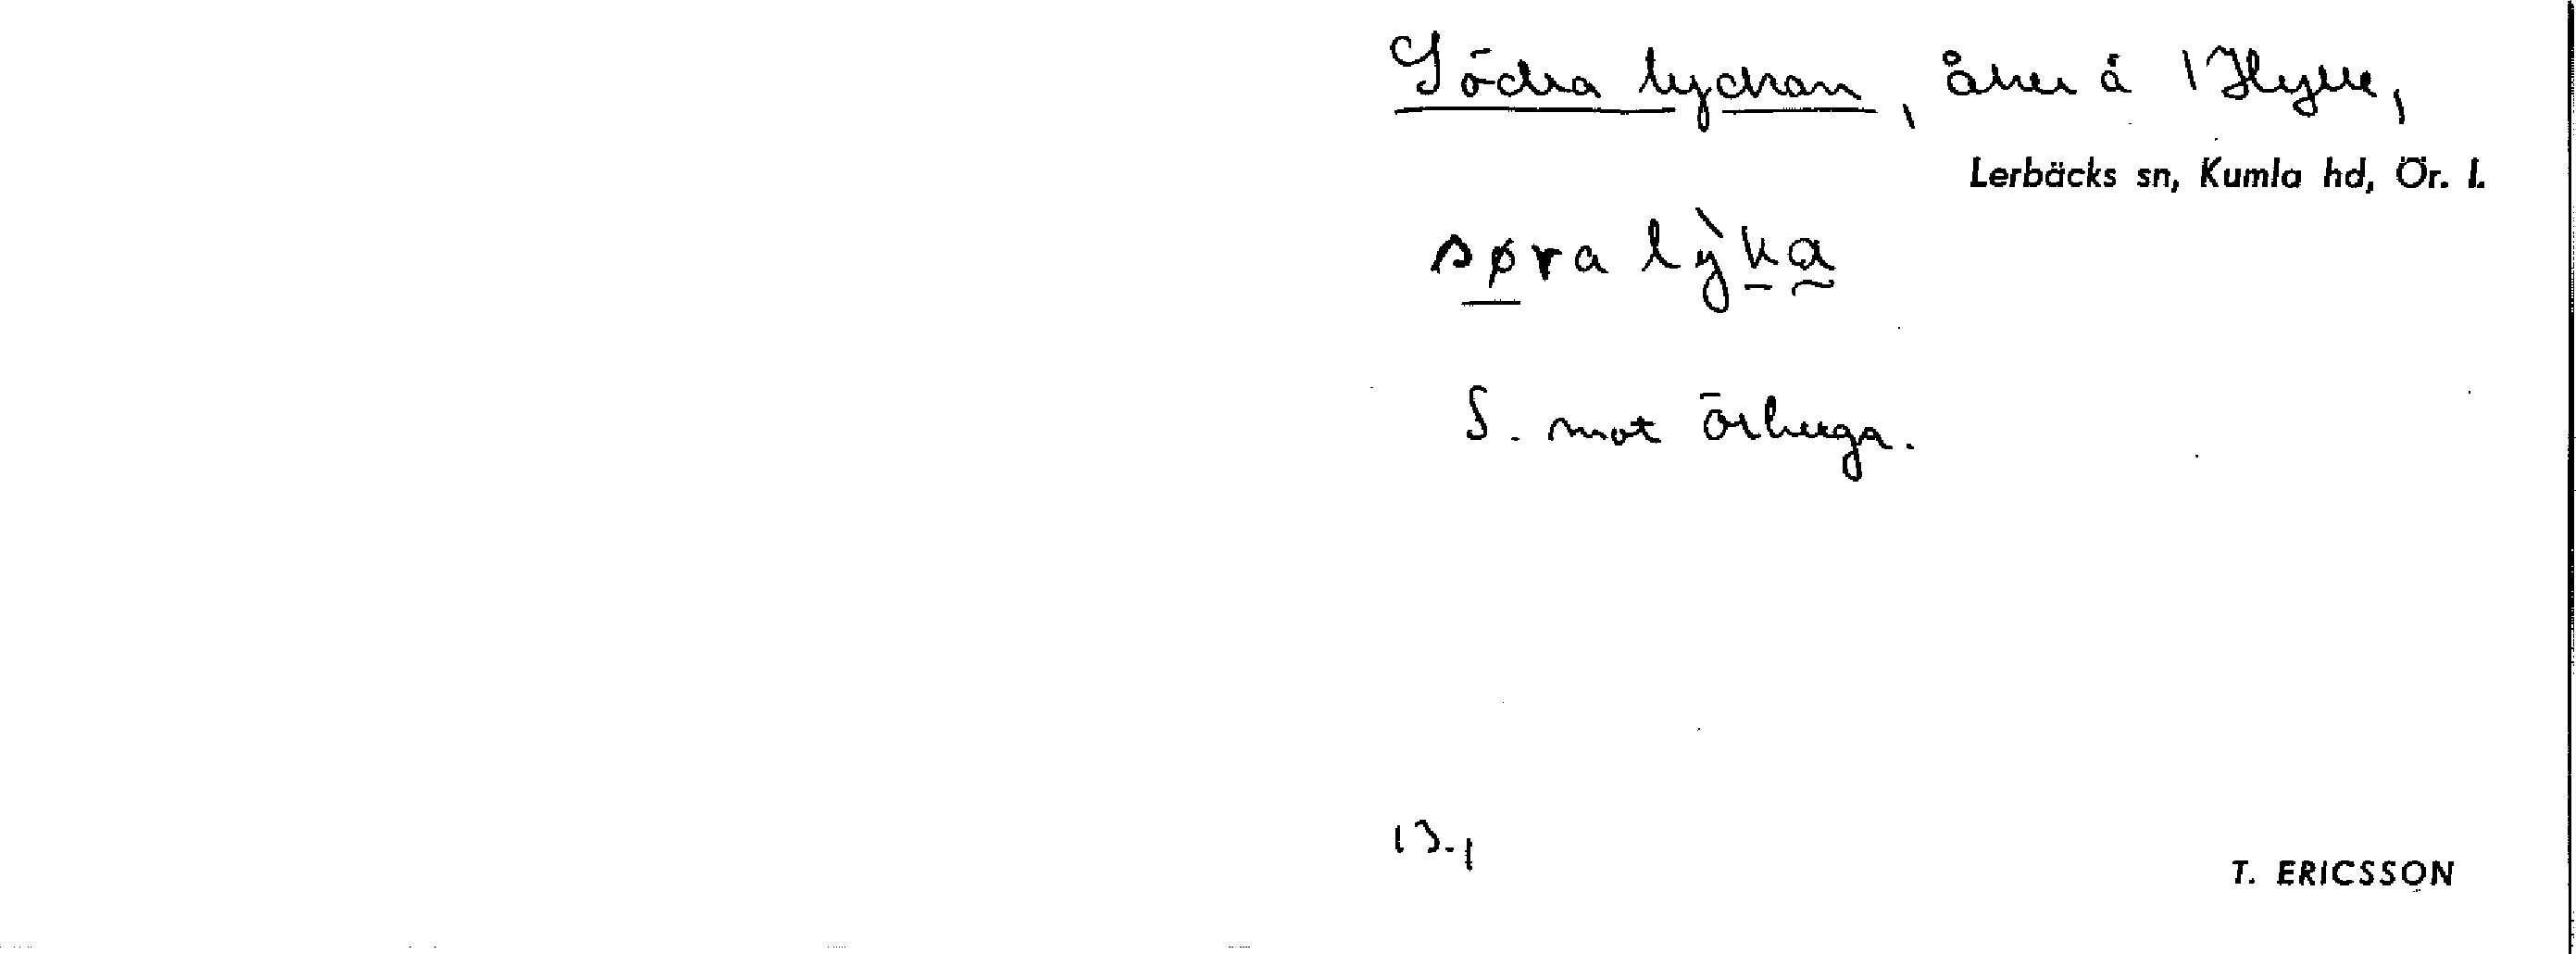 Södra lyckan, åker å 1 Hytte,
Lerbäcks sn, Kumla hd, Ör. l.
søra lỳka
S. mot Örberga.
13.1
T. ERICSSON